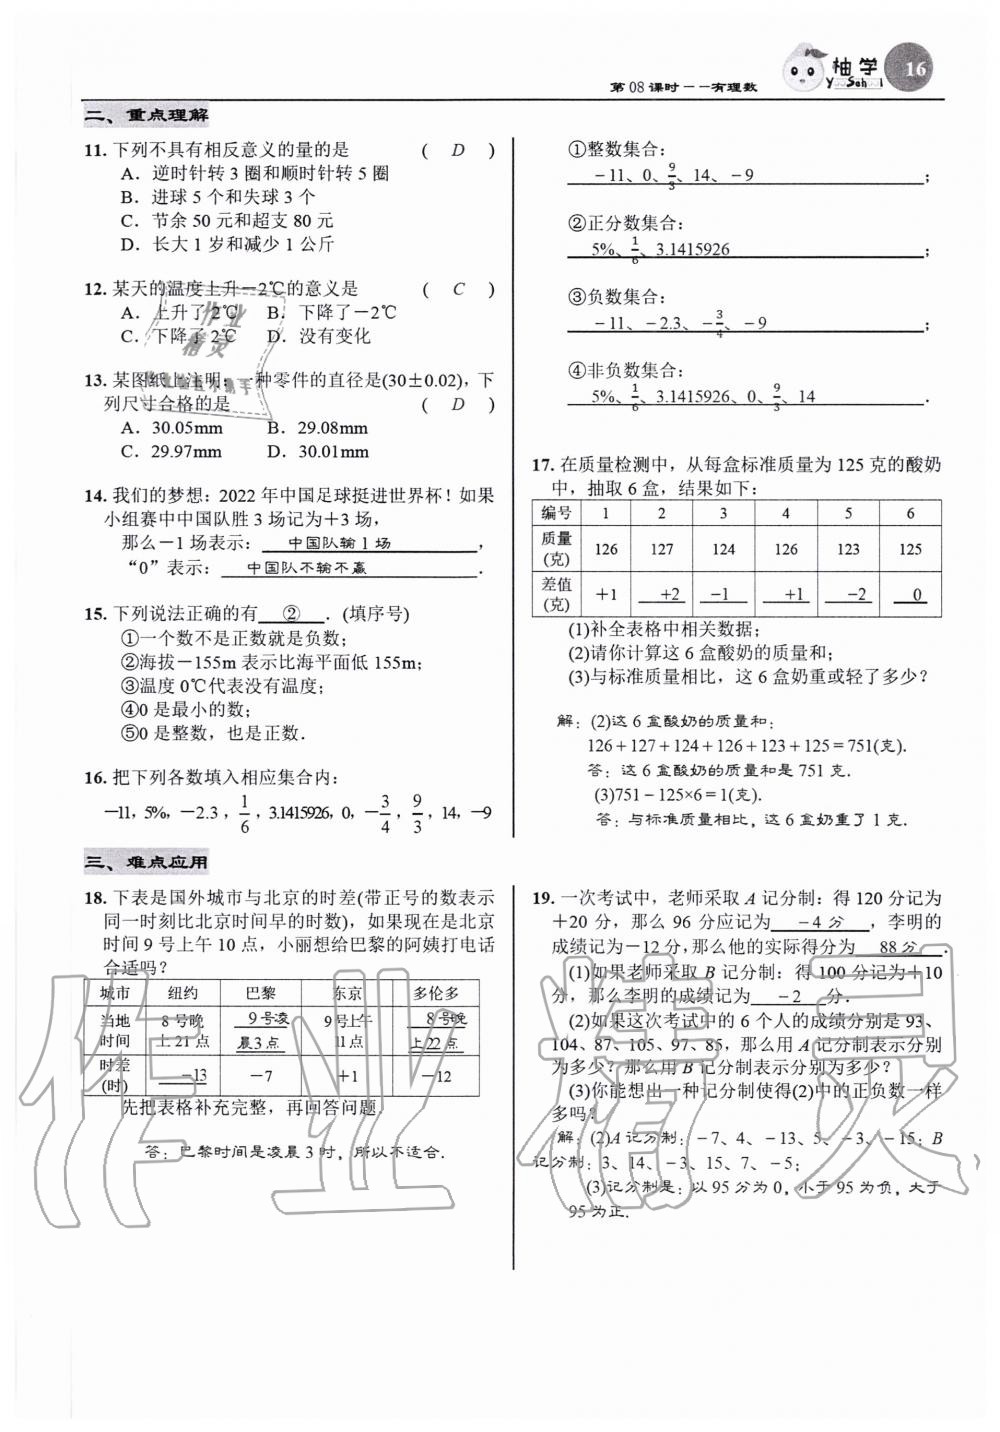 第 08 课时－－有理数
柚学
YouSchool
16
二、重点理解
11. 下列不具有相反意义的量的是 ( D )
A．逆时针转 3 圈和顺时针转 5 圈
B．进球 5 个和失球 3 个
C．节余 50 元和超支 80 元
D．长大 1 岁和减少 1 公斤
12. 某天的温度上升－2℃的意义是 ( C )
A．上升了 2℃ B．下降了－2℃
C．下降了 2℃ D．没有变化
13. 某图纸上注明：一种零件的直径是(30±0.02)，下
列尺寸合格的是 ( D )
A．30.05mm B．29.08mm
C．29.97mm D．30.01mm
14. 我们的梦想：2022 年中国足球挺进世界杯！如果
小组赛中中国队胜 3 场记为＋3 场，
那么－1 场表示： 中国队输 1 场 ，
“0”表示： 中国队不输不赢 ．
15. 下列说法正确的有 ② ．(填序号)
①一个数不是正数就是负数；
②海拔－155m 表示比海平面低 155m；
③温度 0℃代表没有温度；
④0 是最小的数；
⑤0 是整数，也是正数．
16. 把下列各数填入相应集合内：
－11，5%，－2.3，1/6，3.1415926，0，－3/4，9/3，14，－9
①整数集合：
－11、0、9/3、14、－9 ；
②正分数集合：
5%、1/6、3.1415926 ；
③负数集合：
－11、－2.3、－3/4、－9 ；
④非负数集合：
5%、1/6、3.1415926、0、9/3、14 ．
17. 在质量检测中，从每盒标准质量为 125 克的酸奶
中，抽取 6 盒，结果如下：
编号 1 2 3 4 5 6
质量(克) 126 127 124 126 123 125
差值(克) ＋1 ＋2 －1 ＋1 －2 0
(1)补全表格中相关数据；
(2)请你计算这 6 盒酸奶的质量和；
(3)与标准质量相比，这 6 盒奶重或轻了多少？
解：(2)这 6 盒酸奶的质量和：
126＋127＋124＋126＋123＋125＝751(克)．
答：这 6 盒酸奶的质量和是 751 克．
(3)751－125×6＝1(克)．
答：与标准质量相比，这 6 盒奶重了 1 克．
三、难点应用
18. 下表是国外城市与北京的时差(带正号的数表示
同一时刻比北京时间早的时数)，如果现在是北京
时间 9 号上午 10 点，小丽想给巴黎的阿姨打电话
合适吗？
城市 纽约 巴黎 东京 多伦多
当地时间 8 号晚上 21 点 9 号凌晨 3 点 9 号上午 11 点 8 号晚上 22 点
时差(时) －13 －7 ＋1 －12
先把表格补充完整，再回答问题．
答：巴黎时间是凌晨 3 时，所以不适合．
19. 一次考试中，老师采取 A 记分制：得 120 分记为
＋20 分，那么 96 分应记为 －4 分 ，李明的
成绩记为－12 分，那么他的实际得分为 88 分 ．
(1)如果老师采取 B 记分制：得 100 分记为＋10
分，那么李明的成绩记为 －2 分．
(2)如果这次考试中的 6 个人的成绩分别是 93、
104、87、105、97、85，那么用 A 记分制表示分别
为多少？那么用 B 记分制表示分别为多少？
(3)你能想出一种记分制使得(2)中的正负数一样
多吗？
解：(2)A 记分制：－7、4、－13、5、－3、－15；B
记分制：3、14、－3、15、7、－5；
(3)记分制是：以 95 分为 0，小于 95 为负，大于
95 为正．
作业精灵